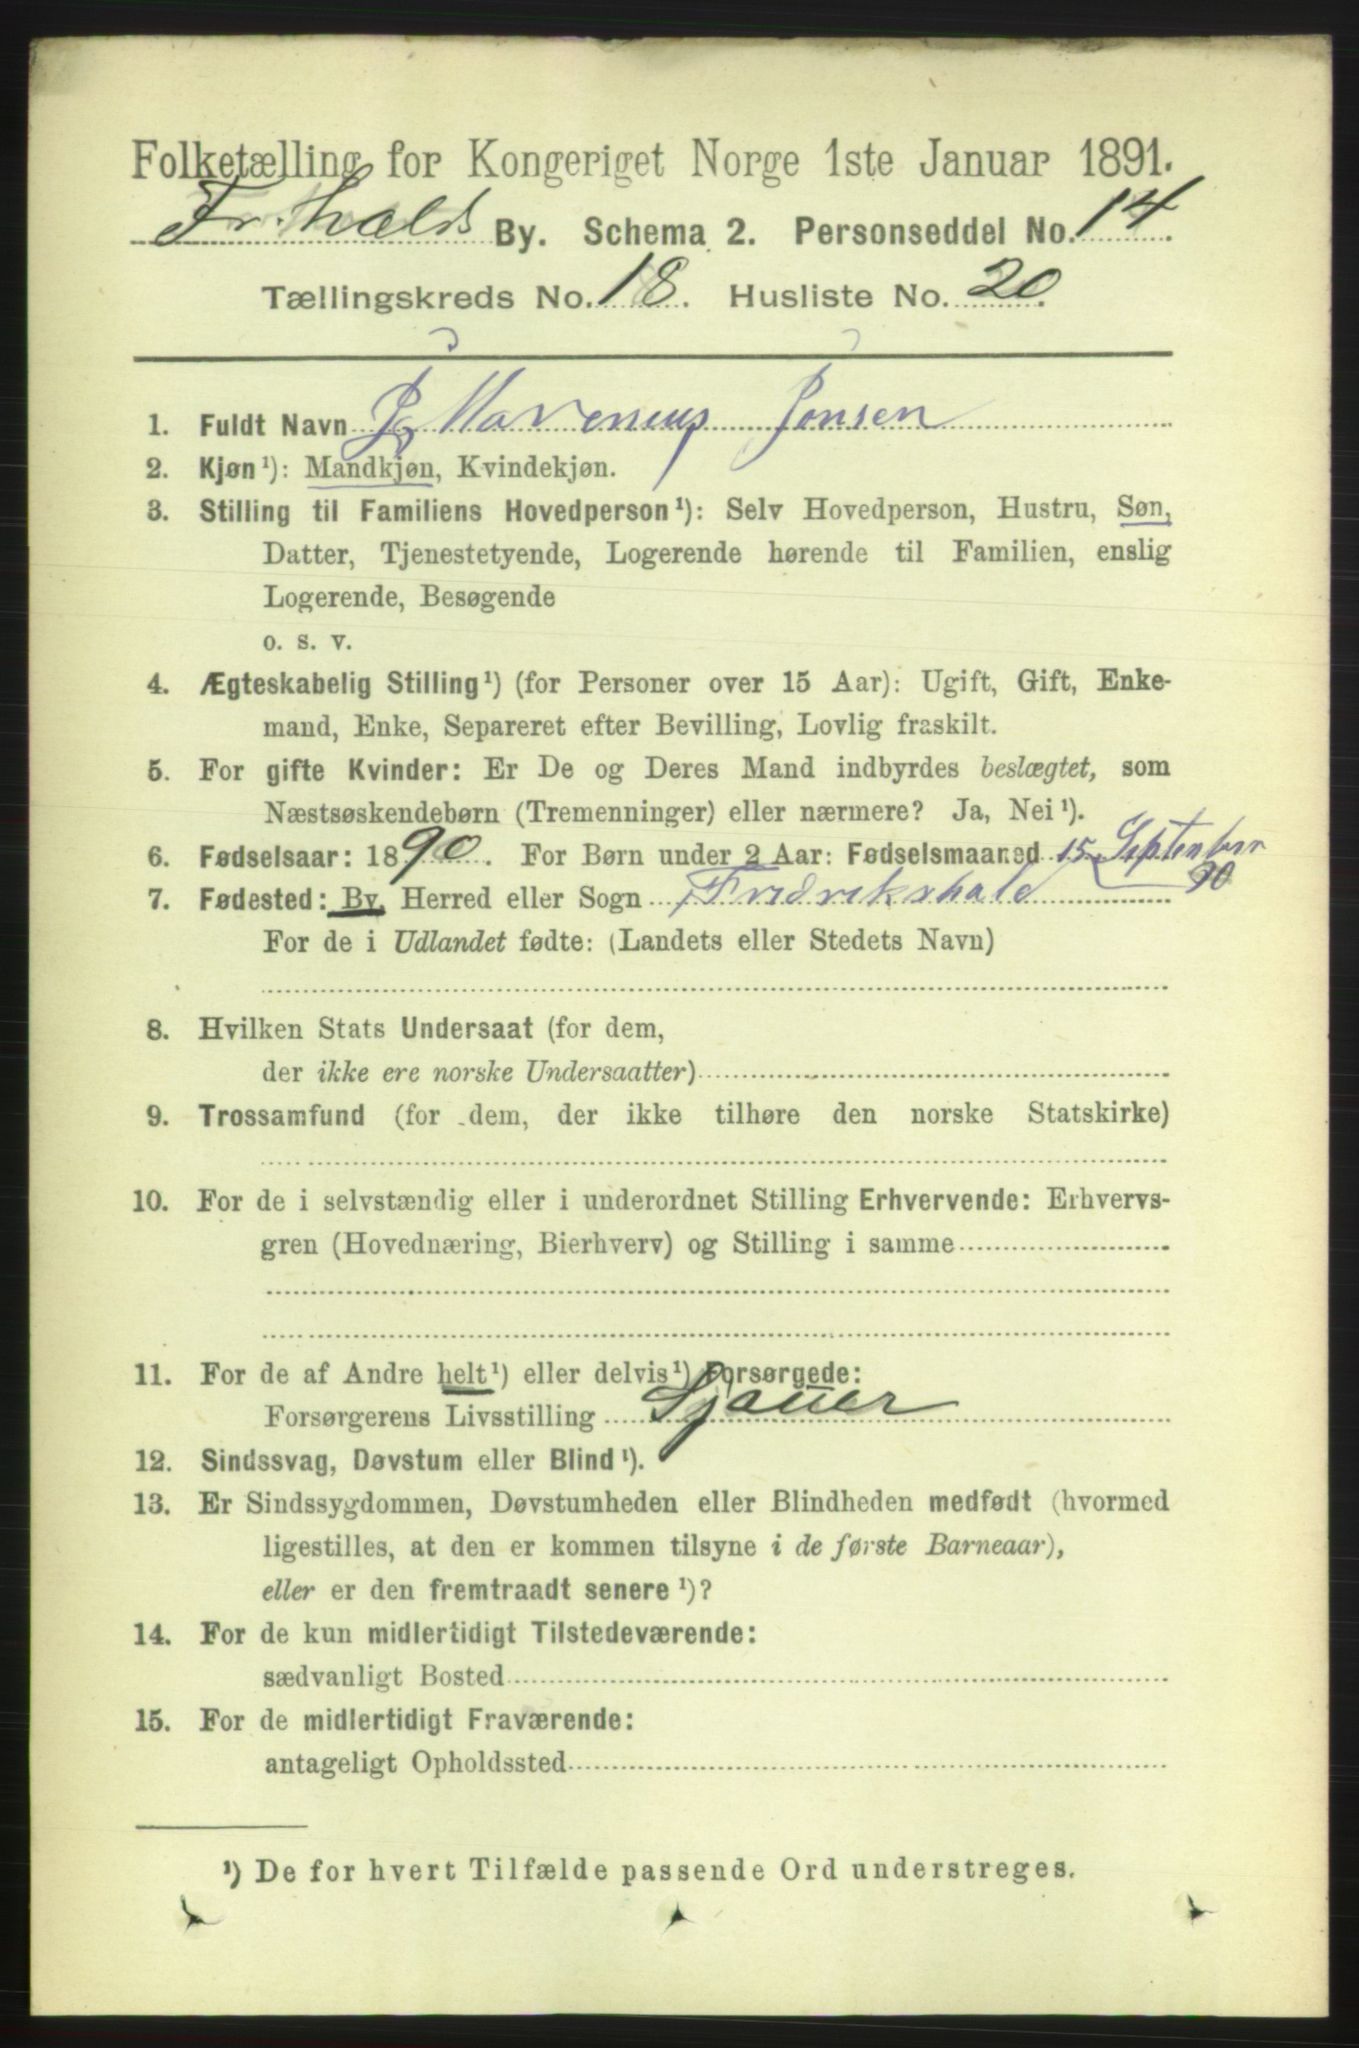 Folketælling for Kongeriget Norge 1ste Januar 1891.
Fr.halds By. Schema 2. Personseddel No. 14.
Tællingskreds No. 18. Husliste No. 20.
1. Fuldt Navn Jonsen
2. Kjøn¹): Mandkjøn, Kvindekjøn.
3. Stilling til Familiens Hovedperson¹): Selv Hovedperson, Hustru, Søn,
Datter, Tjenestetyende, Logerende hørende til Familien, enslig
Logerende, Besøgende
o. s. v.
4. Ægteskabelig Stilling¹) (for Personer over 15 Aar): Ugift, Gift, Enke-
mand, Enke, Separeret efter Bevilling, Lovlig fraskilt.
5. For gifte Kvinder: Er De og Deres Mand indbyrdes beslægtet, som
Næstsøskendebørn (Tremenninger) eller nærmere? Ja, Nei¹).
6. Fødselsaar: 1890. For Børn under 2 Aar: Fødselsmaaned 15 September
90
7. Fødested: By, Herred eller Sogn Fredrikshald
For de i Udlandet fødte: (Landets eller Stedets Navn)
8. Hvilken Stats Undersaat (for dem,
der ikke ere norske Undersaatter)
9. Trossamfund (for dem, der ikke tilhøre den norske Statskirke)
10. For de i selvstændig eller i underordnet Stilling Erhvervende: Erhvervs-
gren (Hovednæring, Bierhverv) og Stilling i samme
11. For de af Andre helt¹) eller delvis¹) Forsørgede:
Forsørgerens Livsstilling Sjauer
12. Sindssvag, Døvstum eller Blind¹).
13. Er Sindssygdommen, Døvstumheden eller Blindheden medfødt (hvormed
ligestilles, at den er kommen tilsyne i de første Barneaar),
eller er den fremtraadt senere¹)?
14. For de kun midlertidigt Tilstedeværende:
sædvanligt Bosted
15. For de midlertidigt Fraværende:
antageligt Opholdssted
¹) De for hvert Tilfælde passende Ord understreges.